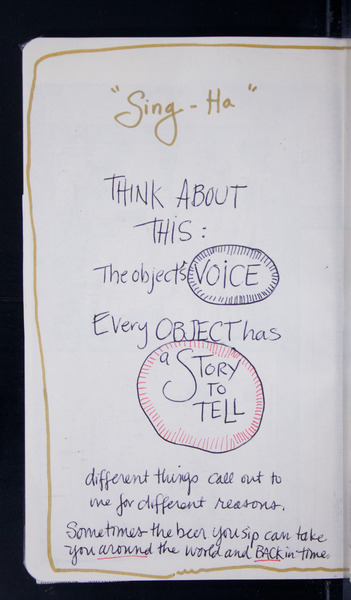 "Sing-Ha"
THINK ABOUT
THIS:
The object's VOICE
Every OBJECT has
a STORY
TO
TELL
different things call out to
me for different reasons.
Sometimes the beer you sip can take
you around the world and BACK in time.